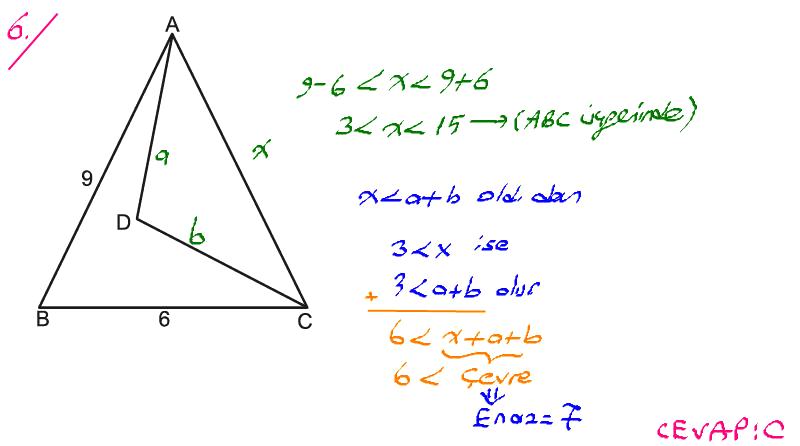 6.
A
9
a
x
D
b
B
6
C
9-6 < x < 9+6
3 < x < 15 → (ABC üçgeninde)
x < a+b old. dan
3 < x ise
+ 3 < a+b olur
6 < x+a+b
6 < Çevre
⇓
En az = 7
CEVAP: C